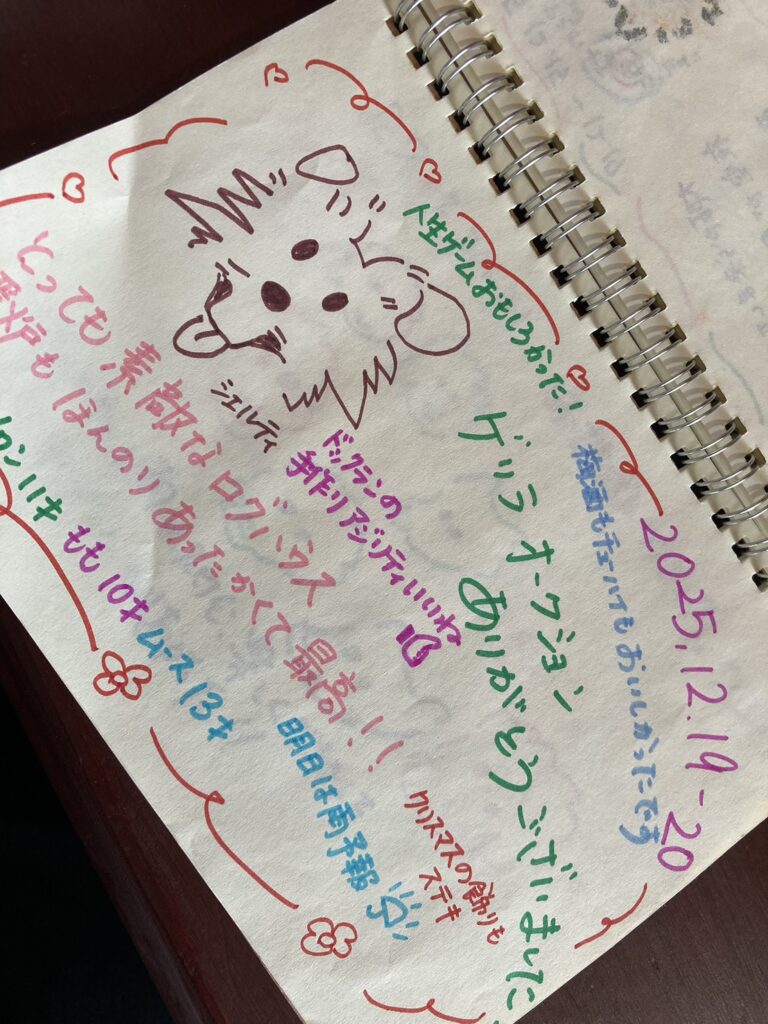 2025.12.19-20
梅酒もチューハイもおいしかったです
ゲリラオークション
ありがとうございました
人生ゲームおもしろかった!
クリスマスの飾りも
ステキ
ドックランの
手作りアジリティいいね
シェルティ
とっても素敵なログハウス
炉もほんのりあったかくて最高!!
明日は雨予報
ロン11才 もも10才 ムース13才